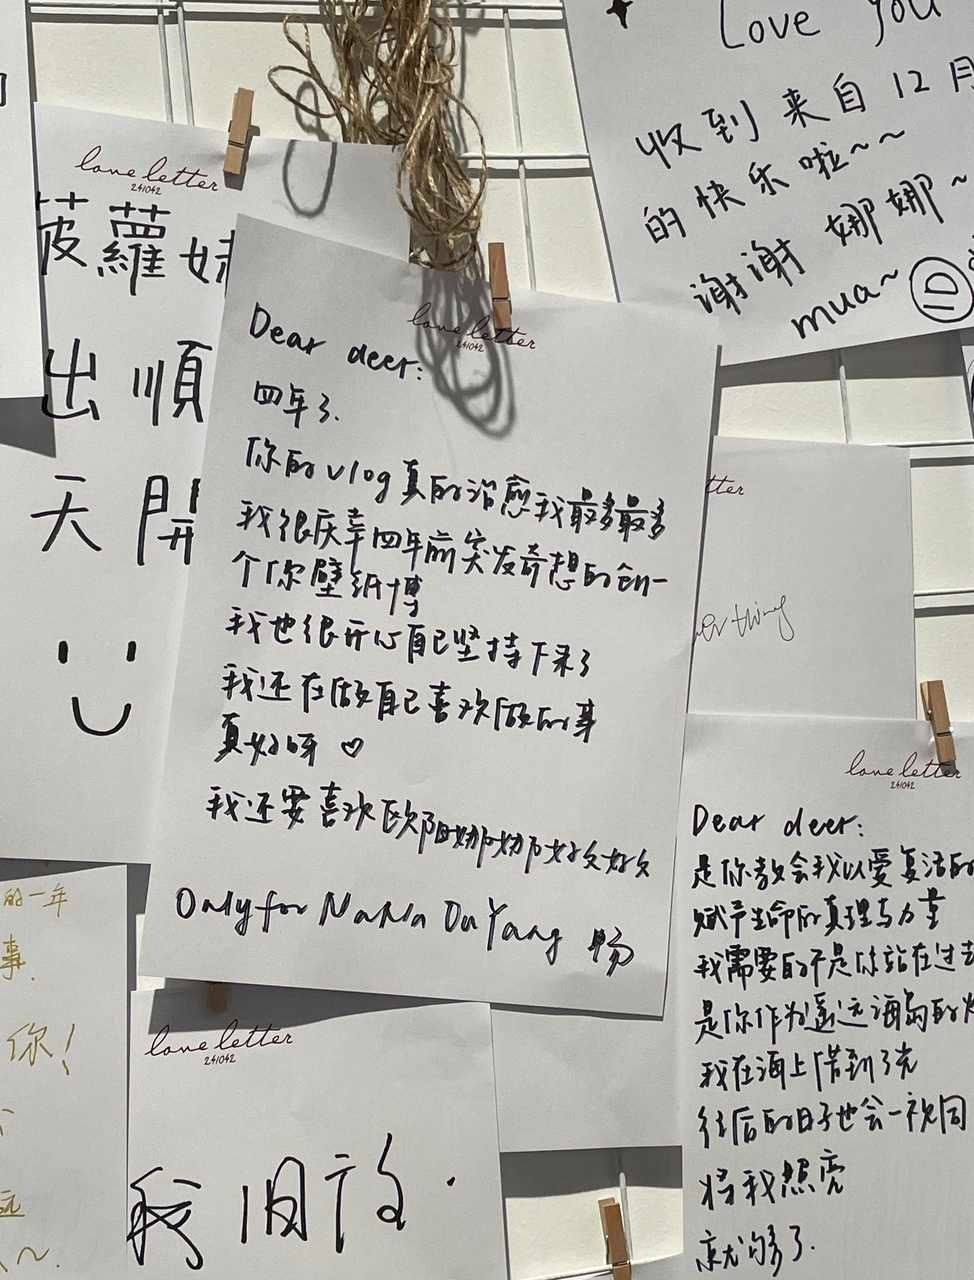 Love You
收到来自12月
的快乐啦~~
谢谢娜娜~
mua~
love letter
241042
菠蘿妹
出順
天開
love letter
241042
Dear deer:
四年了.
你的vlog真的治愈我最多最多
我很庆幸四年前突发奇想的创一
个你壁纸博
我也很开心自己坚持下来了
我还在做自己喜欢做的事
真好呀♡
我还要喜欢欧阳娜娜好久好久
Only for NaNa OuYang 畅
tter
thing
love letter
241042
Dear deer:
是你教会我以爱复活的
赋予生命的真理与力量
我需要的不是你站在过去
是你作为遥远海岛的灯
我在海上借到了光
往后的日子也会一视同
将我照亮
就够了.
的一年
事.
你!
love letter
241042
我